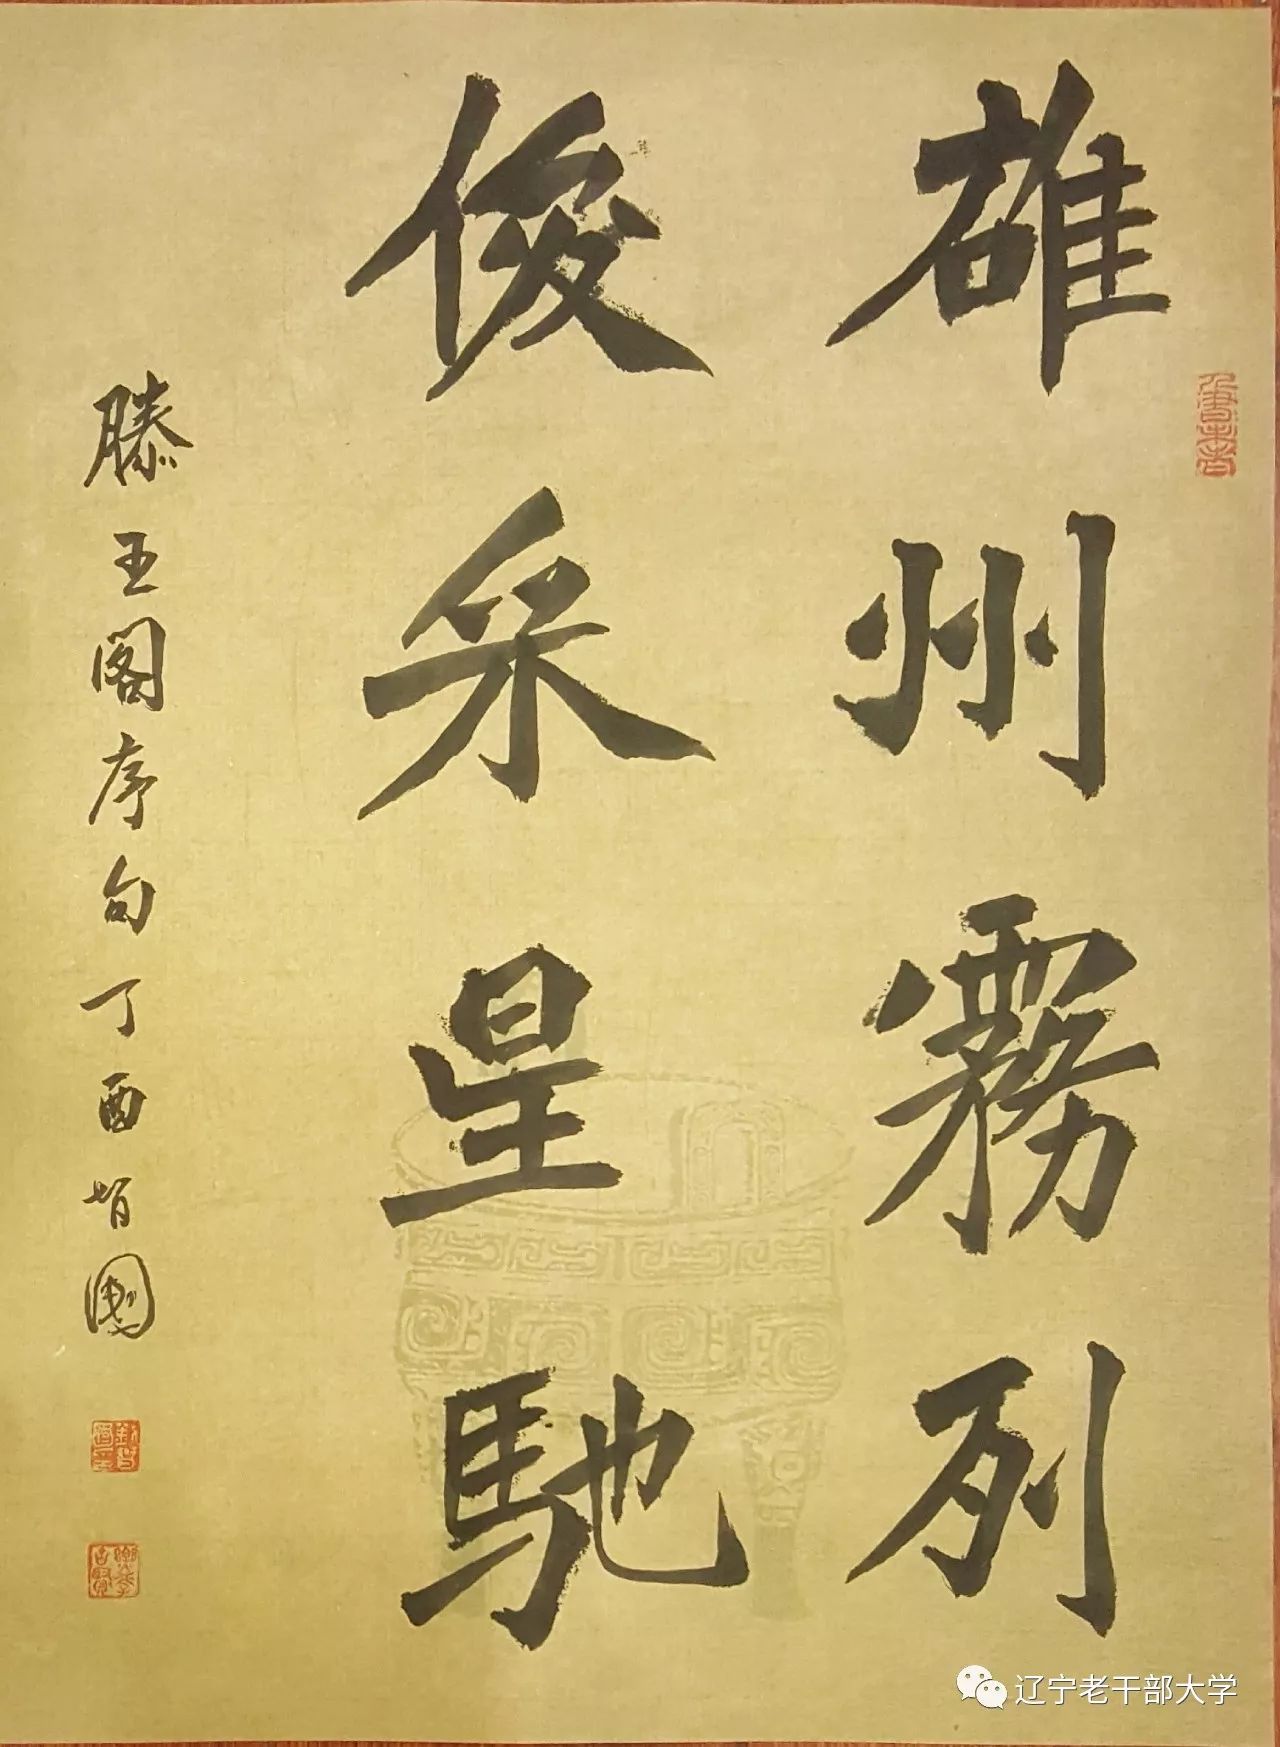 雄州霧列
俊采星馳
滕王阁序句丁酉智國
辽宁老干部大学